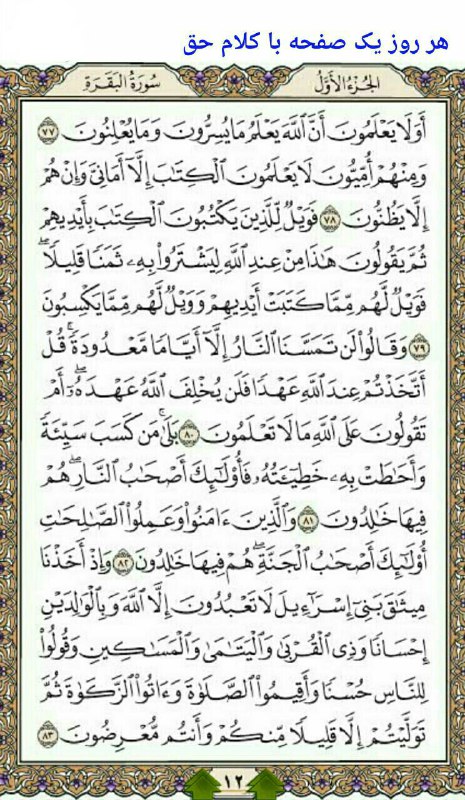 هر روز یک صفحه با کلام حق
الجُزءُ الأَوَّلُ سُورَةُ البَقَرَةِ
أَوَلَا يَعْلَمُونَ أَنَّ ٱللَّهَ يَعْلَمُ مَا يُسِرُّونَ وَمَا يُعْلِنُونَ ٧٧
وَمِنْهُمْ أُمِّيُّونَ لَا يَعْلَمُونَ ٱلْكِتَٰبَ إِلَّآ أَمَانِىَّ وَإِنْ هُمْ
إِلَّا يَظُنُّونَ ٧٨ فَوَيْلٌ لِّلَّذِينَ يَكْتُبُونَ ٱلْكِتَٰبَ بِأَيْدِيهِمْ
ثُمَّ يَقُولُونَ هَٰذَا مِنْ عِندِ ٱللَّهِ لِيَشْتَرُوا۟ بِهِۦ ثَمَنًا قَلِيلًا ۖ
فَوَيْلٌ لَّهُم مِّمَّا كَتَبَتْ أَيْدِيهِمْ وَوَيْلٌ لَّهُم مِّمَّا يَكْسِبُونَ
٧٩ وَقَالُوا۟ لَن تَمَسَّنَا ٱلنَّارُ إِلَّآ أَيَّامًا مَّعْدُودَةً ۚ قُلْ
أَتَّخَذْتُمْ عِندَ ٱللَّهِ عَهْدًا فَلَن يُخْلِفَ ٱللَّهُ عَهْدَهُۥٓ ۖ أَمْ
تَقُولُونَ عَلَى ٱللَّهِ مَا لَا تَعْلَمُونَ ٨٠ بَلَىٰ ۚ مَن كَسَبَ سَيِّئَةً
وَأَحَٰطَتْ بِهِۦ خَطِيٓـَٔتُهُۥ فَأُو۟لَٰٓئِكَ أَصْحَٰبُ ٱلنَّارِ ۖ هُمْ
فِيهَا خَٰلِدُونَ ٨١ وَٱلَّذِينَ ءَامَنُوا۟ وَعَمِلُوا۟ ٱلصَّٰلِحَٰتِ
أُو۟لَٰٓئِكَ أَصْحَٰبُ ٱلْجَنَّةِ ۖ هُمْ فِيهَا خَٰلِدُونَ ٨٢ وَإِذْ أَخَذْنَا
مِيثَٰقَ بَنِىٓ إِسْرَٰٓءِيلَ لَا تَعْبُدُونَ إِلَّا ٱللَّهَ وَبِٱلْوَٰلِدَيْنِ
إِحْسَانًا وَذِى ٱلْقُرْبَىٰ وَٱلْيَتَٰمَىٰ وَٱلْمَسَٰكِينِ وَقُولُوا۟
لِلنَّاسِ حُسْنًا وَأَقِيمُوا۟ ٱلصَّلَوٰةَ وَءَاتُوا۟ ٱلزَّكَوٰةَ ثُمَّ
تَوَلَّيْتُمْ إِلَّا قَلِيلًا مِّنكُمْ وَأَنتُم مُّعْرِضُونَ ٨٣
١٢